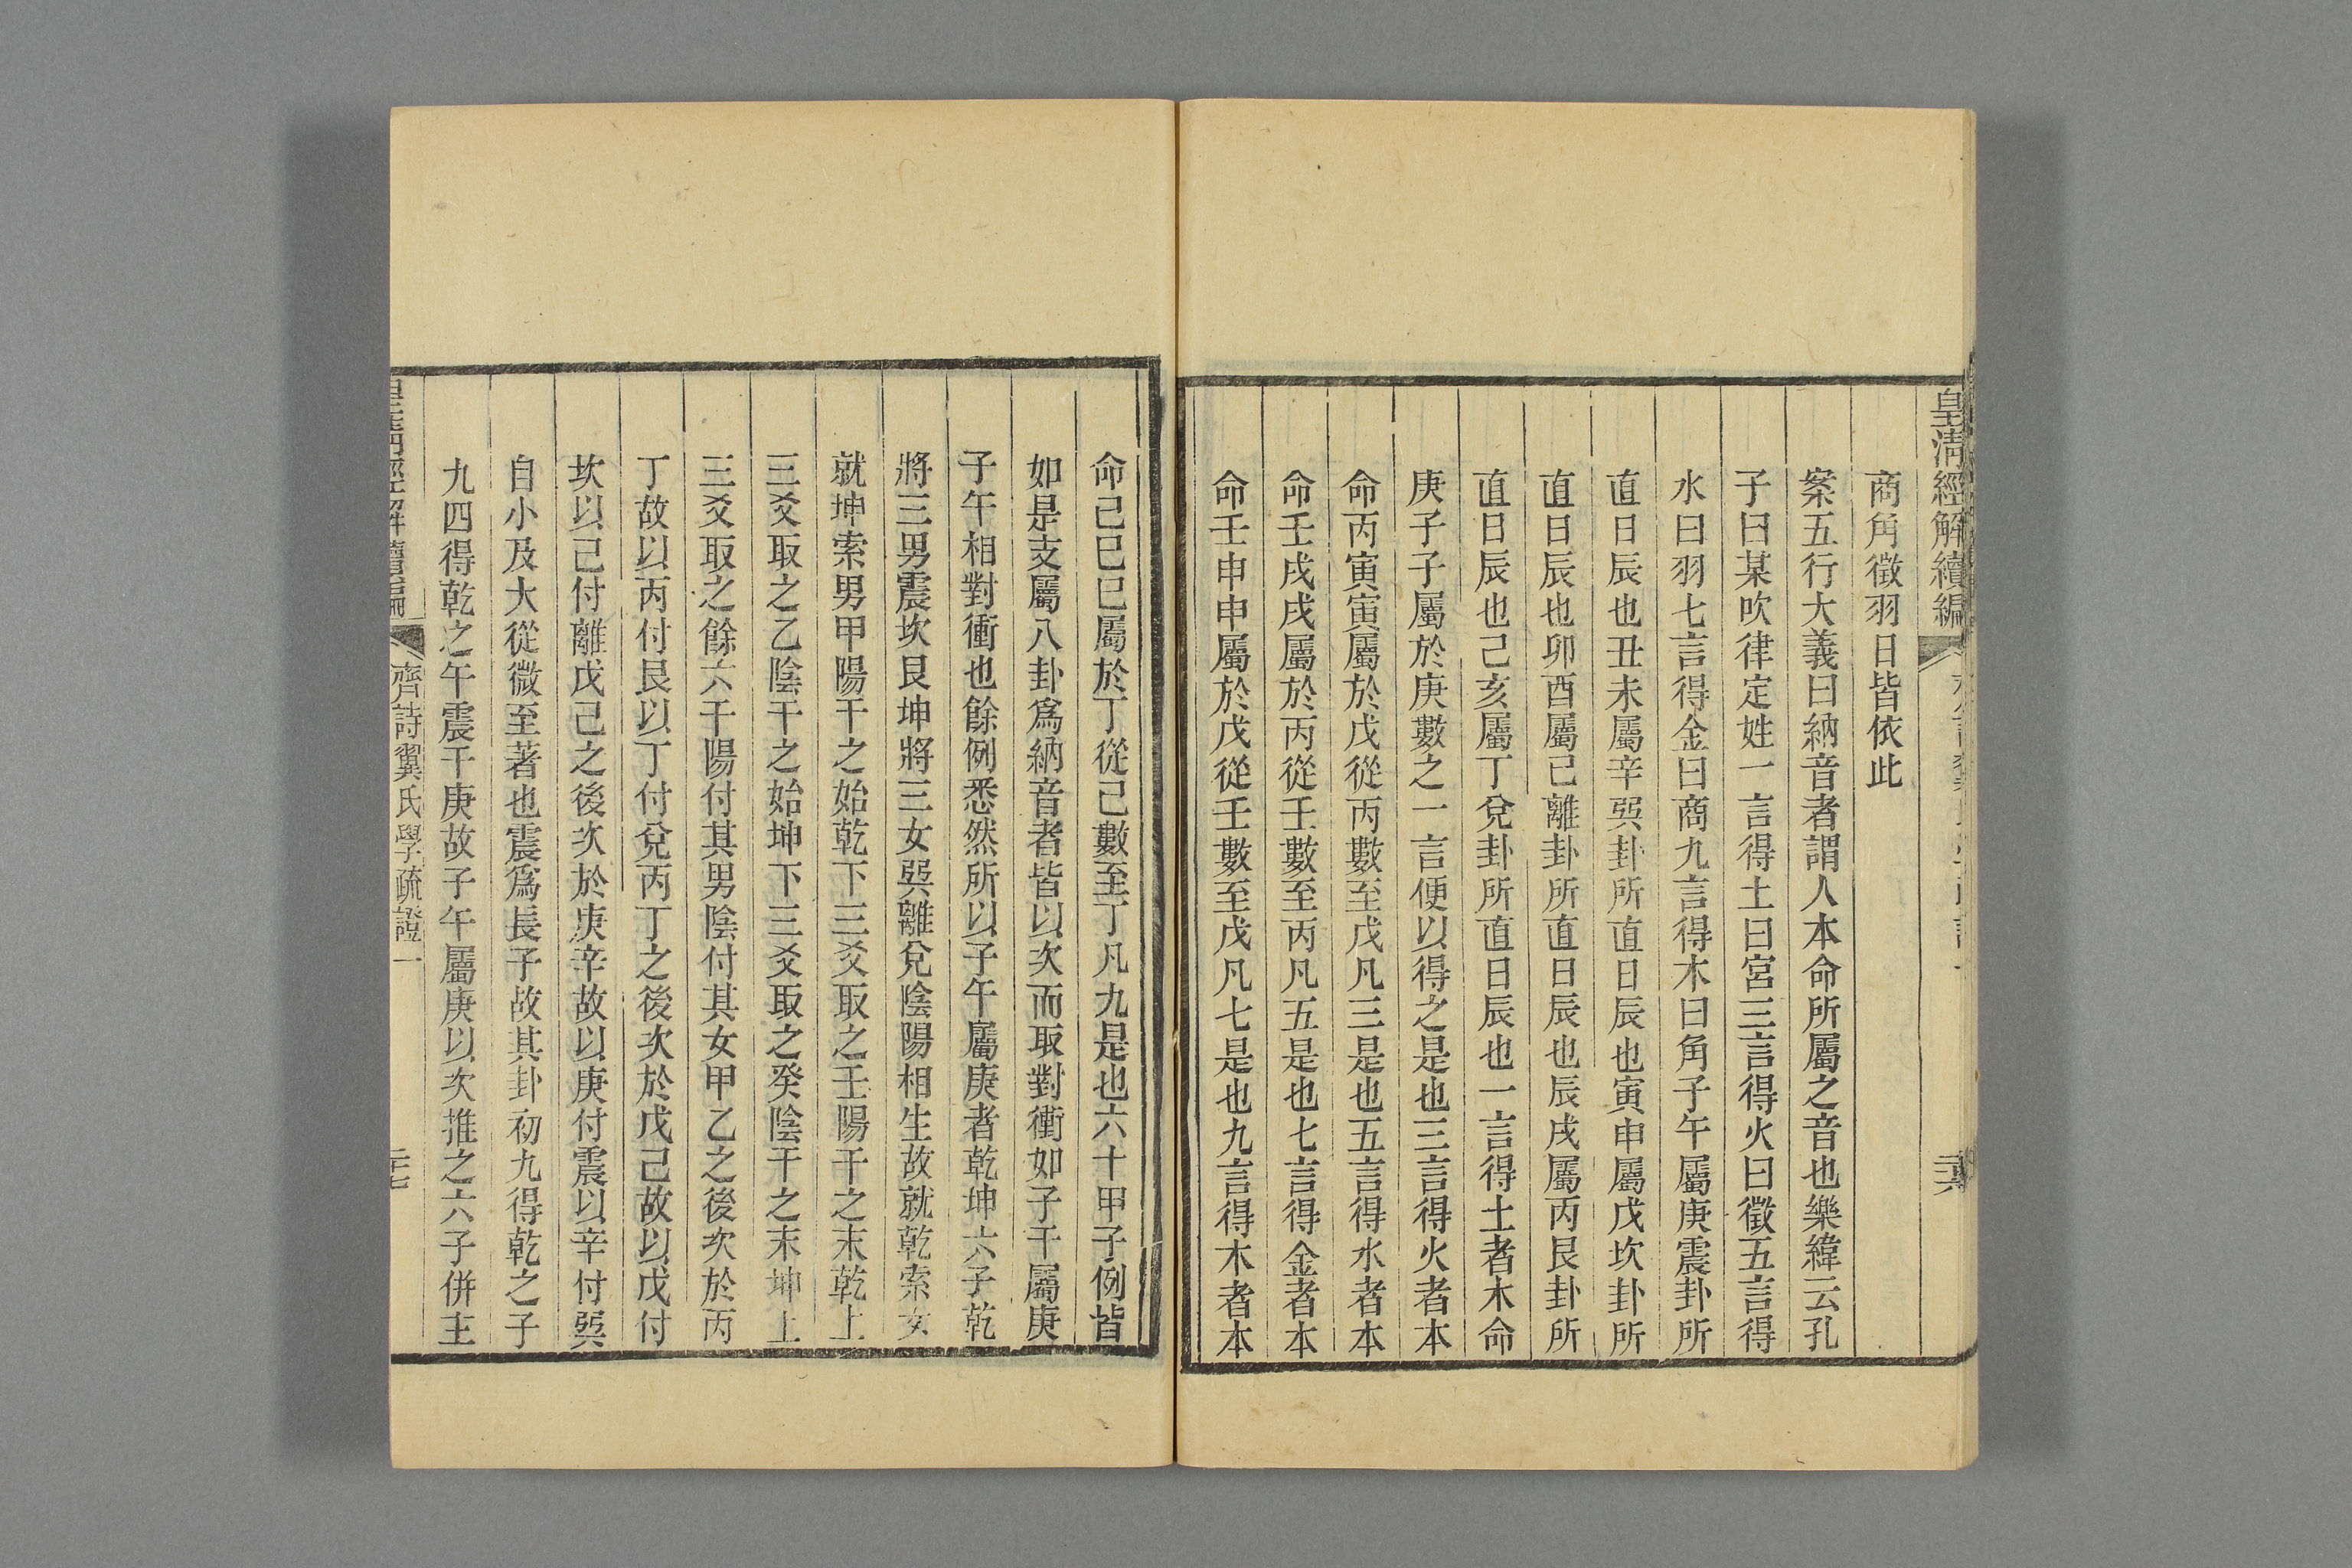 皇清經解續編
二六
商角徵羽日皆依此
案五行大義曰納音者謂人本命所屬之音也樂緯云孔
子曰某吹律定姓一言得土曰宮三言得火曰徵五言得
水曰羽七言得金曰商九言得木曰角子午屬庚震卦所
直日辰也丑未屬辛巽卦所直日辰也寅申屬戊坎卦所
直日辰也卯酉屬己離卦所直日辰也辰戌屬丙艮卦所
直日辰也己亥屬丁兌卦所直日辰也一言得土者木命
庚子子屬於庚數之一言便以得之是也三言得火者本
命丙寅寅屬於戊從丙數至戊凡三是也五言得水者本
命壬戌戌屬於丙從壬數至丙凡五是也七言得金者本
命壬申申屬於戊從壬數至戊凡七是也九言得木者本
命己巳巳屬於丁從己數至丁凡九是也六十甲子例皆
如是支屬八卦爲納音者皆以次而取對衝如子干屬庚
子午相對衝也餘例悉然所以子午屬庚者乾坤六子乾
將三男震坎艮坤將三女巽離兌陰陽相生故就乾索女
就坤索男甲陽干之始乾下三爻取之壬陽干之末乾上
三爻取之乙陰干之始坤下三爻取之癸陰干之末坤上
三爻取之餘六干陽付其男陰付其女甲乙之後次於丙
丁故以丙付艮以丁付兌丙丁之後次於戊己故以戊付
坎以己付離戊己之後次於庚辛故以庚付震以辛付巽
自小及大從微至著也震爲長子故其卦初九得乾之子
九四得乾之午震干庚故子午屬庚以次推之六子併主
皇清經解續編
齊詩翼氏學疏證一
二十七